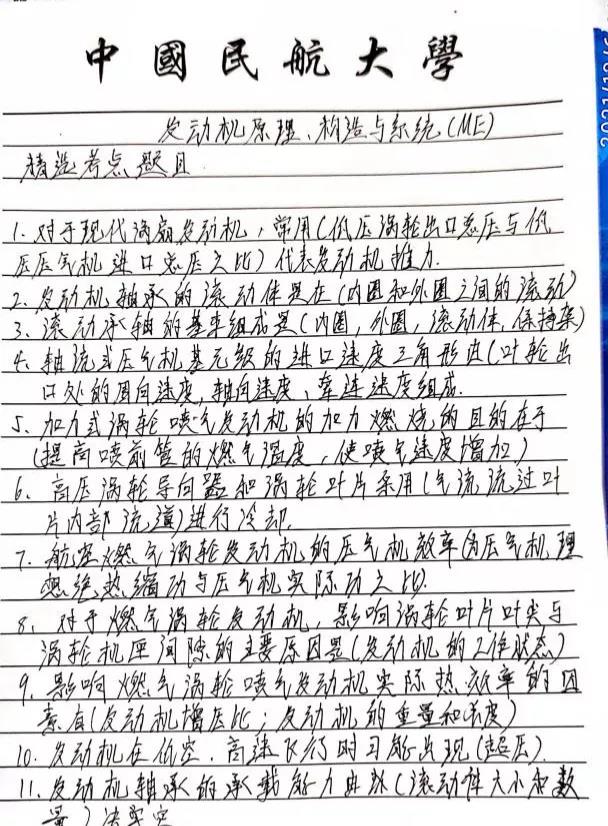 中國民航大學
2021/12/
发动机原理、构造与系统(ME)
精选考点题目
1. 对于现代涡扇发动机,常用(低压涡轮出口总压与低
压压气机进口总压之比)代表发动机推力.
2. 发动机轴承的滚动体是在(内圈和外圈之间的滚动)
3. 滚动承轴的基本组成是(内圈,外圈,滚动体,保持架)
4. 轴流式压气机基元级的进口速度三角形由(叶轮出
口处的周向速度,轴向速度、牵连速度组成.
5. 加力式涡轮喷气发动机的加力燃烧的目的在于
(提高喷前管的燃气温度,使喷气速度增加)
6. 高压涡轮导向器和涡轮叶片采用(气流流过叶
片内部流道)进行冷却.
7. 航空燃气涡轮发动机的压气机效率(为压气机理
想绝热缩功与压气机实际功之比).
8. 对于燃气涡轮发动机,影响涡轮叶片叶尖与
涡轮机匣间隙的主要原因是(发动机的工作状态)
9. 影响燃气涡轮喷气发动机实际热效率的因
素有(发动机增压比;发动机的重量和长度)
10. 发动机在低空.高速飞行时可能出现(超压).
11. 发动机轴承的承载能力由球(滚动体大小和数
量)决定